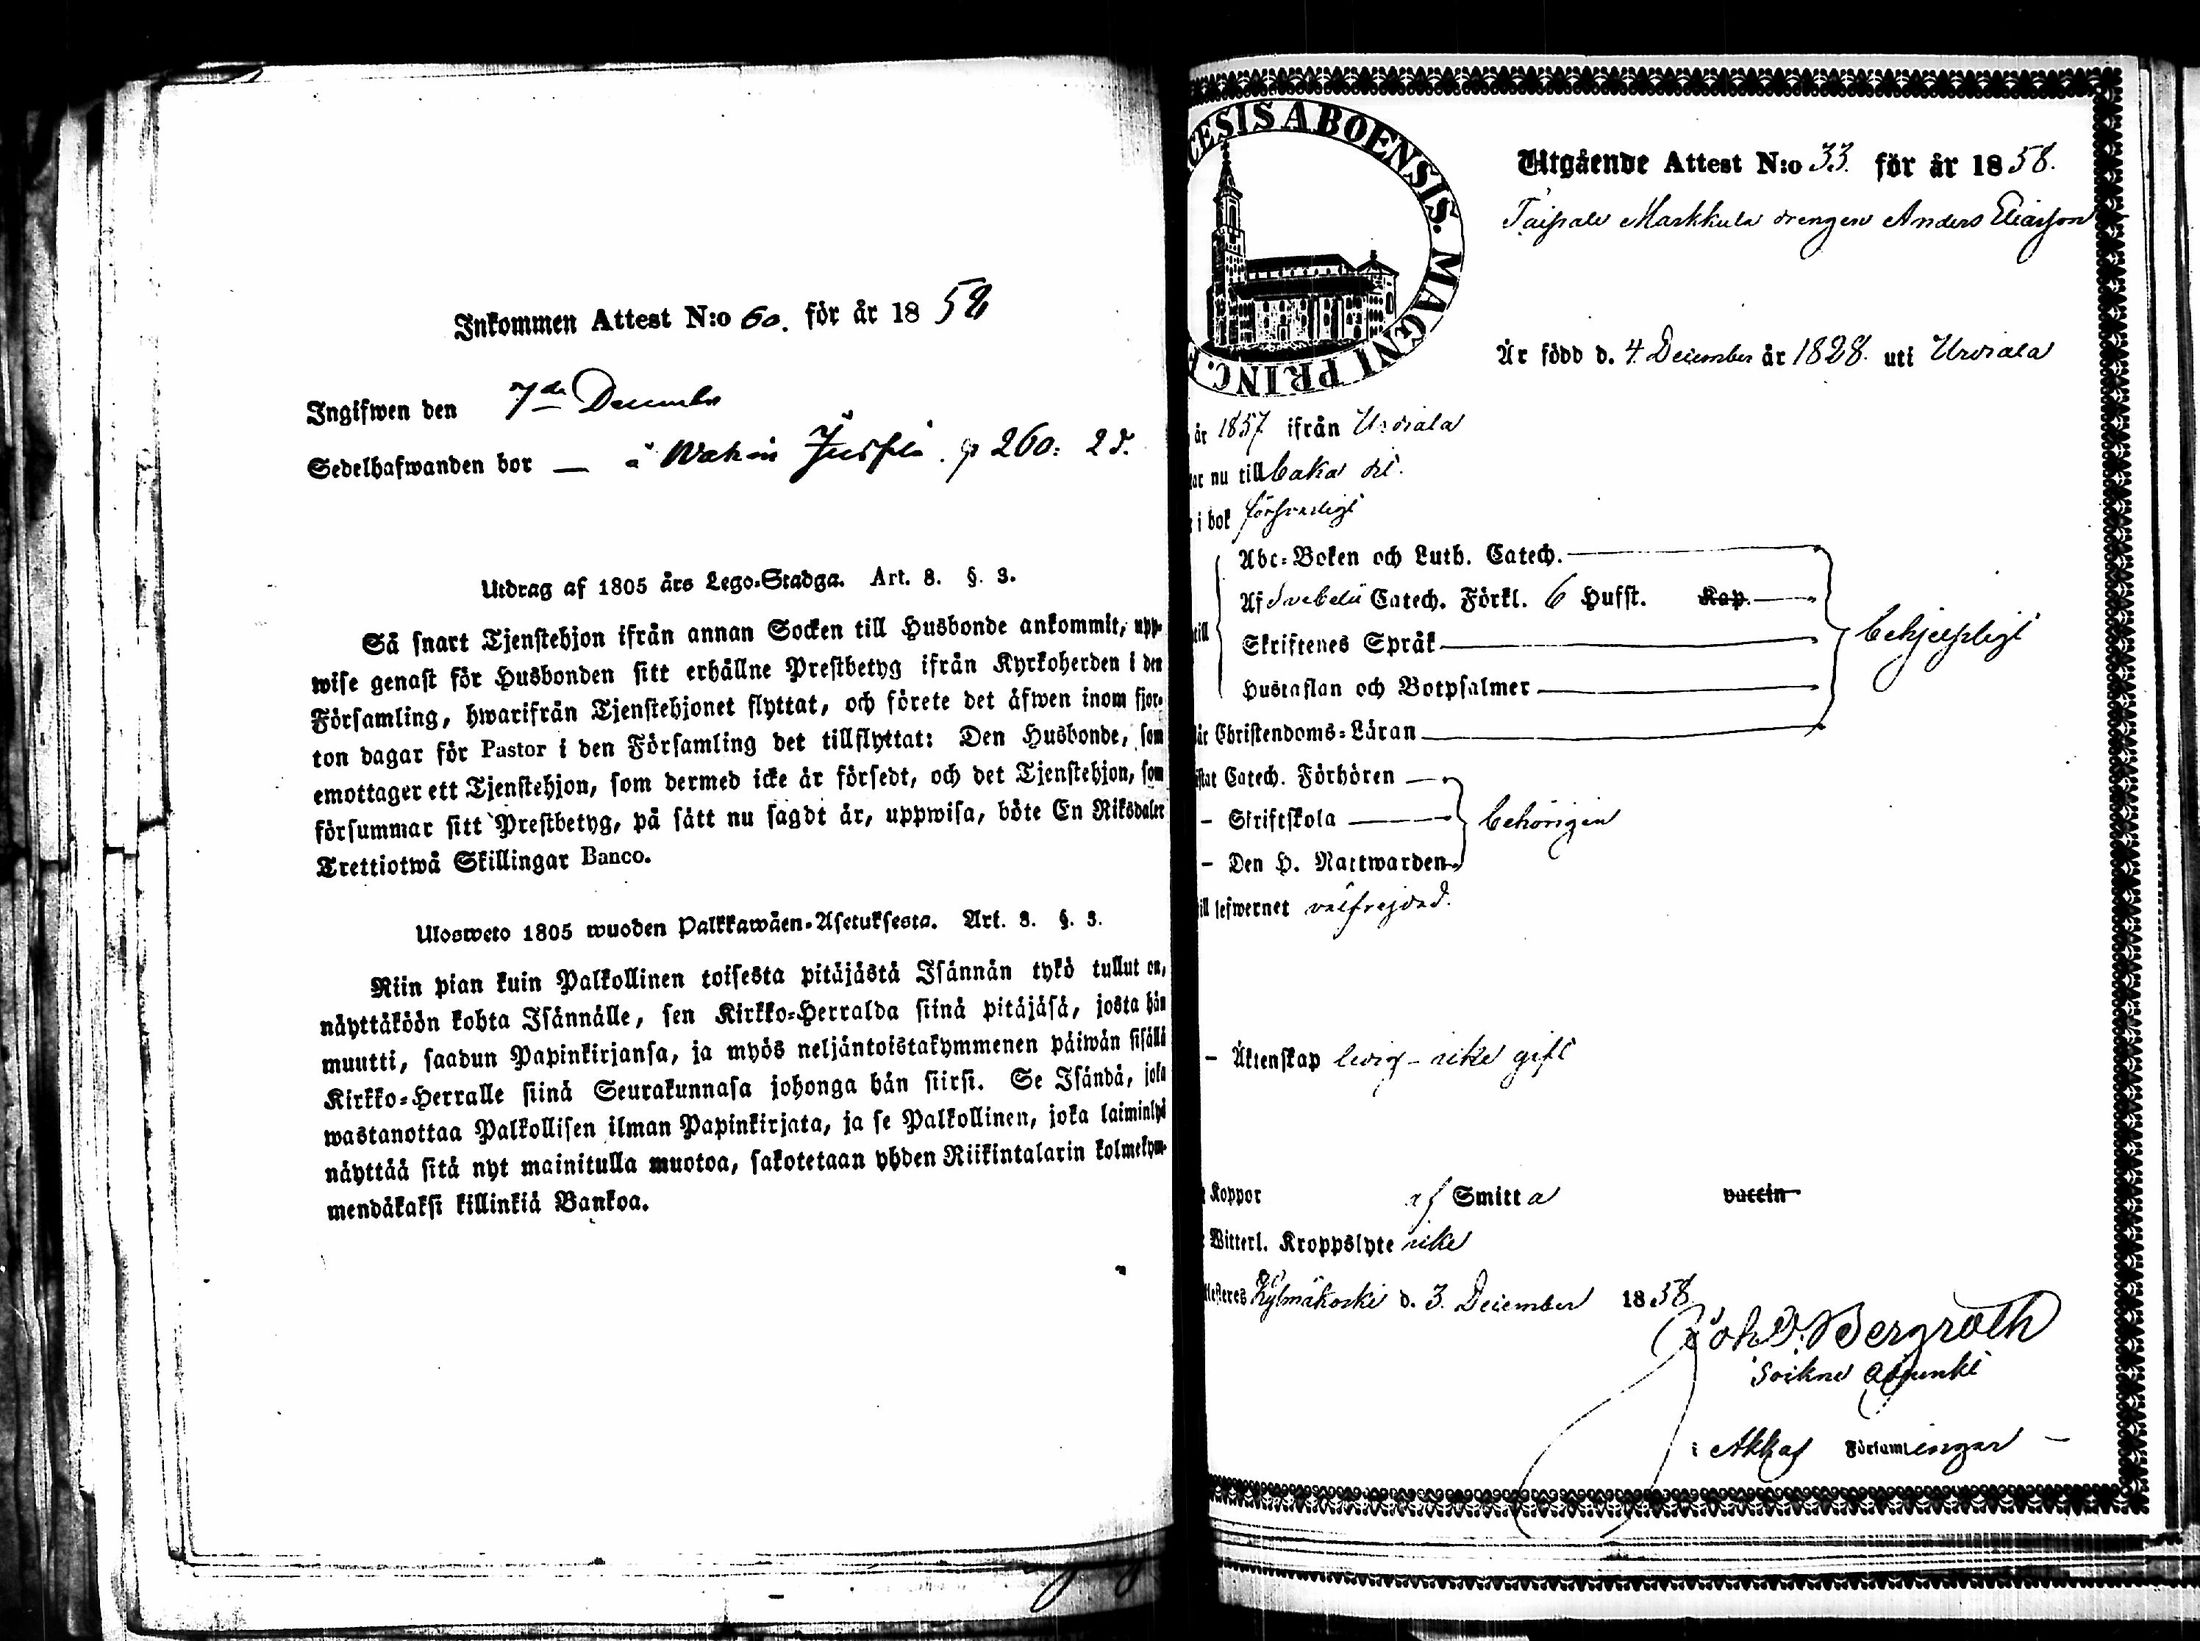 Inkommen Attest N:o 60. för år 1858
Ingifwen den 7de December
Sedelhafwanden bor — p 260: 2 d.
Utdrag af 1805 års Lego-Stadga. Art. 8. §. 3.
Så snart Tjenstehjon ifrån annan Socken till Husbonde ankommit, upp-
wise genast för Husbonden sitt erhållne Prestbetyg ifrån Kyrkoherden i den
Församling, hwarifrån Tjenstehjonet flyttat, och förete det äfwen inom fjor-
ton dagar för Pastor i den Församling det tillflyttat: Den Husbonde, som
emottager ett Tjenstehjon, som dermed icke är försedt, och det Tjenstehjon, som
försummar sitt Prestbetyg, på sätt nu sagdt är, uppwisa, böte En Riksdaler
Trettiotwå Skillingar Banco.
Ulosweto 1805 wuoden Palkkawäen-Asetuksesta. Art. 8. §. 3.
Niin pian kuin Palkollinen toisesta pitäjästä Isännän tykö tullut on,
näyttäköön kohta Isännälle, sen Kirkko-Herralda siinä pitäjäsä, josta hän
muutti, saadun Papinkirjansa, ja myös neljäntoistakymmenen päiwän sisällä
Kirkko-Herralle siinä Seurakunnasa johonga hän siirsi. Se Isändä, joka
wastanottaa Palkollisen ilman Papinkirjata, ja se Palkollinen, joka laiminlyö
näyttää sitä nyt mainitulla muotoa, sakotetaan yhden Riikintalarin kolmekym-
mendäkaksi killinkiä Bankoa.
CESIS ABOENSIS. MAGNI PRINC. F
Utgående Attest N:o 33. för år 1858.
Taipale Markkula drengen Anders Eliasson
Är född d. 4 December år 1828. uti Urdiala
år 1857 ifrån Urdiala
ar nu tillbaka dit.
i bok försvarligt
Abc-Boken och Luth. Catech.
Af Svebelii Catech. Förkl. 6 Hufst. Kap.
till
Skriftenes Språk
behjelpligt
Hustaflan och Botpsalmer
är Christendoms-Läran
stat Catech. Förhören
– Skriftskola
behörigen
– Den H. Nattwarden
ill lefwernet välfrejdad.
– Äktenskap ledig – icke gift
Koppor af Smitta vaccin
Witterl. Kroppslyte icke
ttesteres Kylmäkoski d. 3. December 1858.
Joh. O. Bergroth
Sockne Adjunkt
i Akkas Församlingar –